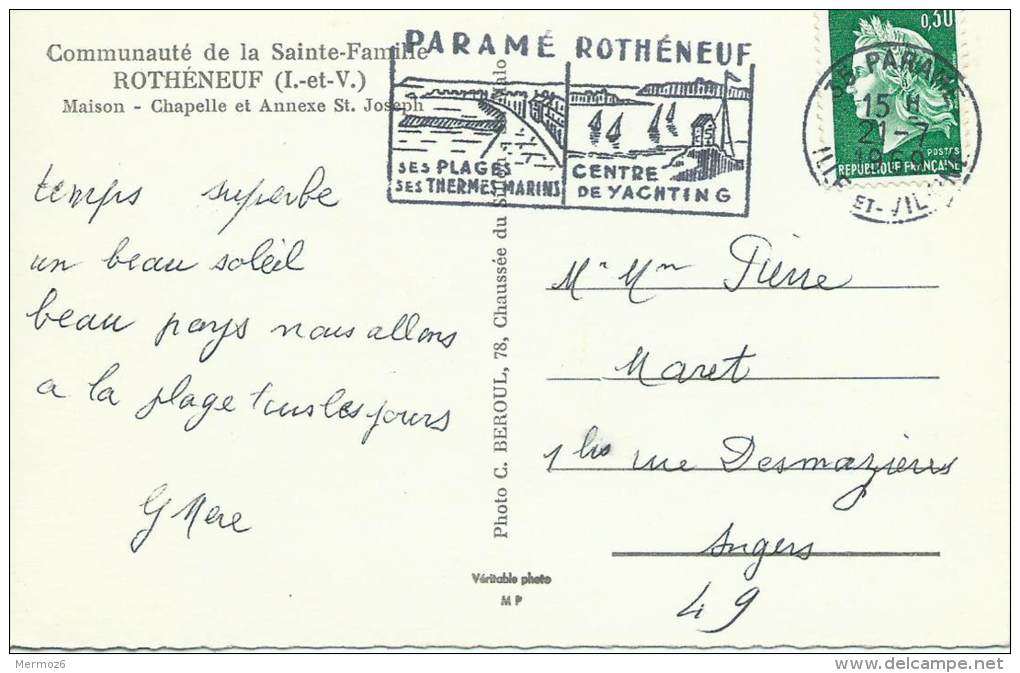 Communauté de la Sainte-Famille
ROTHÉNEUF (I.-et-V.)
Maison - Chapelle et Annexe St. Joseph
PARAMÉ ROTHÉNEUF
SES PLAGES
SES THERMES MARINS
CENTRE
DE YACHTING
0,30
POSTES
REPUBLIQUE FRANÇAISE
35 PARAME
15 H
21-7
1969
ILLE-ET-VILAINE
temps superbe
un beau soleil
beau pays nous allons
a la plage tous les jours
G Mere
Photo C. BEROUL, 78, Chaussée du Sillon
Véritable photo
MP
Mr Mme Pierre
Maret
1 bis rue Desmazières
Angers
49
Mermoz6
delcampe.net